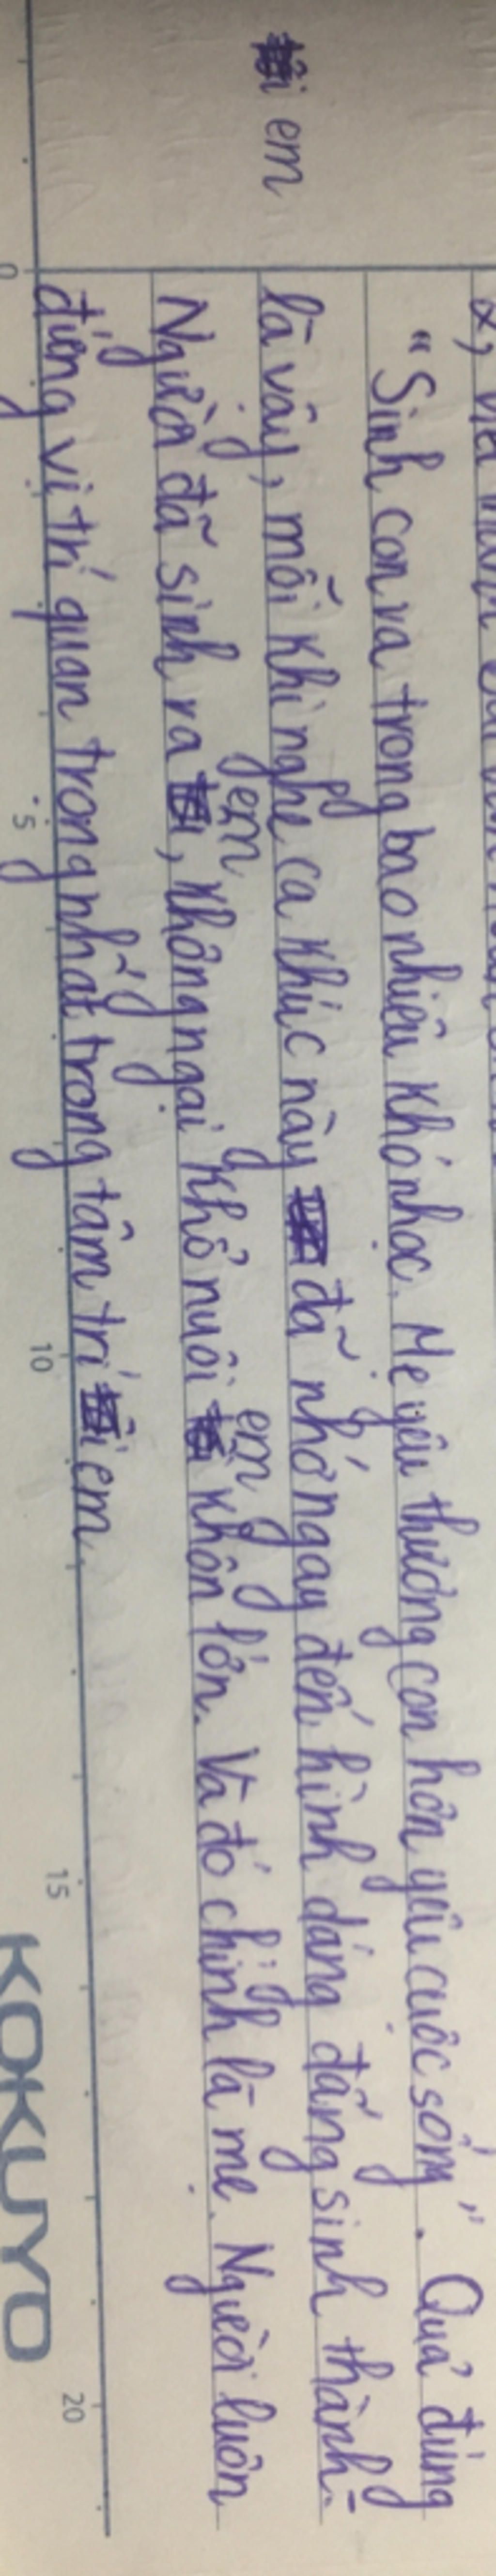 "Sinh con ra trong bao nhiêu khó nhọc. Mẹ yêu thương con hơn yêu cuộc sống". Quả đúng
là vậy, mỗi khi nghe ca khúc này đã nhớ ngay đến hình dáng đấng sinh thành-
em
Người đã sinh ra em, không ngại khổ nuôi em khôn lớn. Và đó chính là mẹ. Người luôn
đứng vị trí quan trọng nhất trong tâm trí em.
0 5 10 15 20
KOKUYO